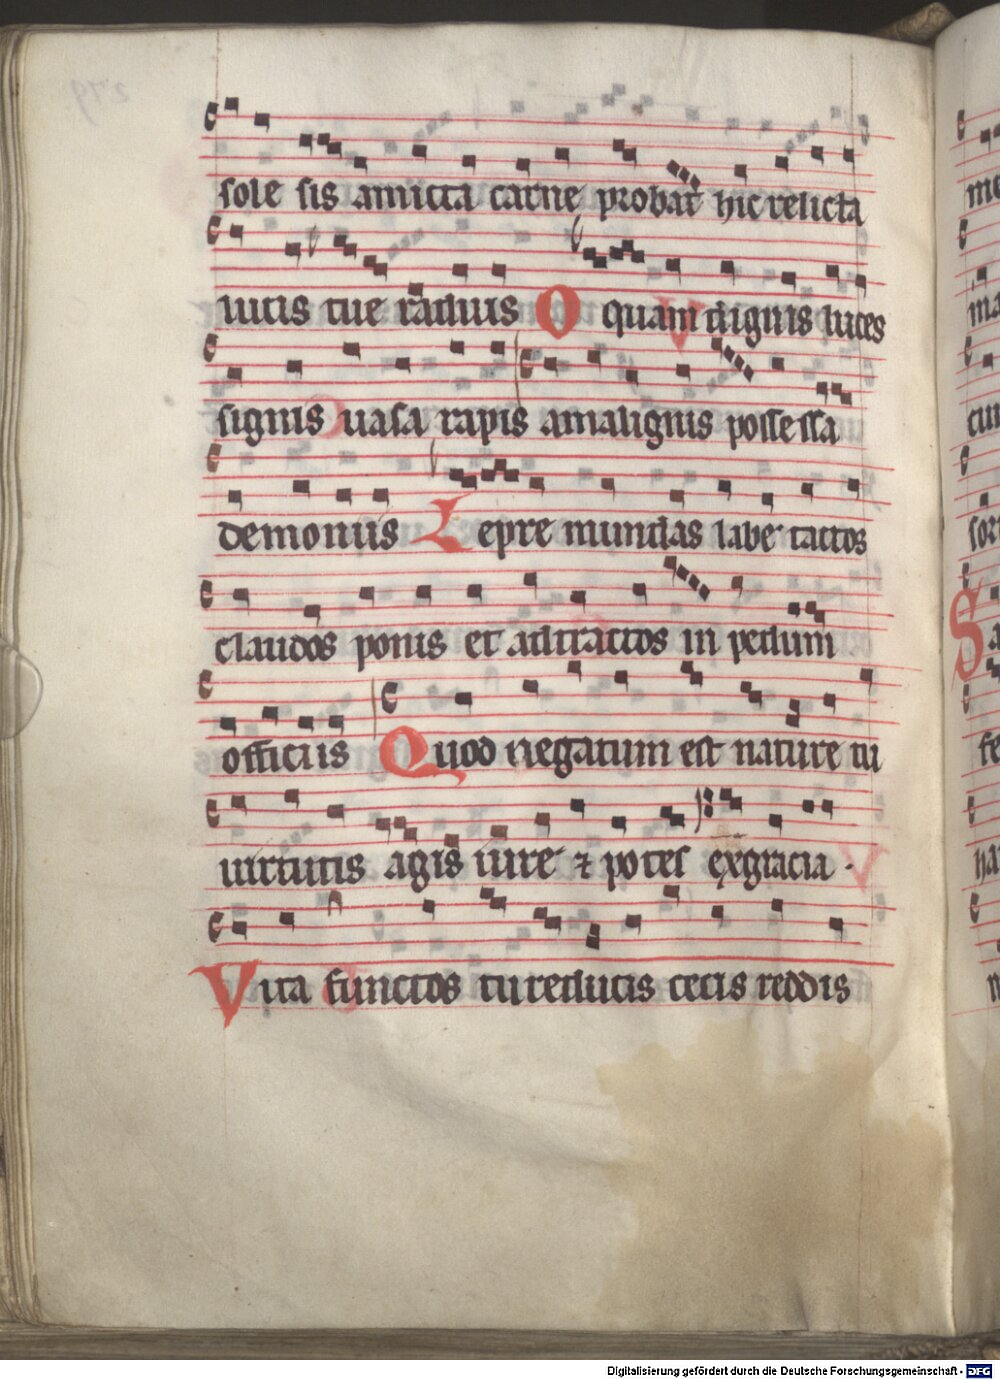 sole sis amicta carne probat hic relicta
uirtutis tue radiis O quam dignis luces
signis uasa rapis amalignis possessa
demoniis Lepre mundas labe tactos
claudos ponis et attractos in pedum
officiis Quod negatum est nature tu
uirtutis agis iure ⁊ potes exgracia
Vita functos tu reducis cecis reddis
Digitalisierung gefördert durch die Deutsche Forschungsgemeinschaft - DFG